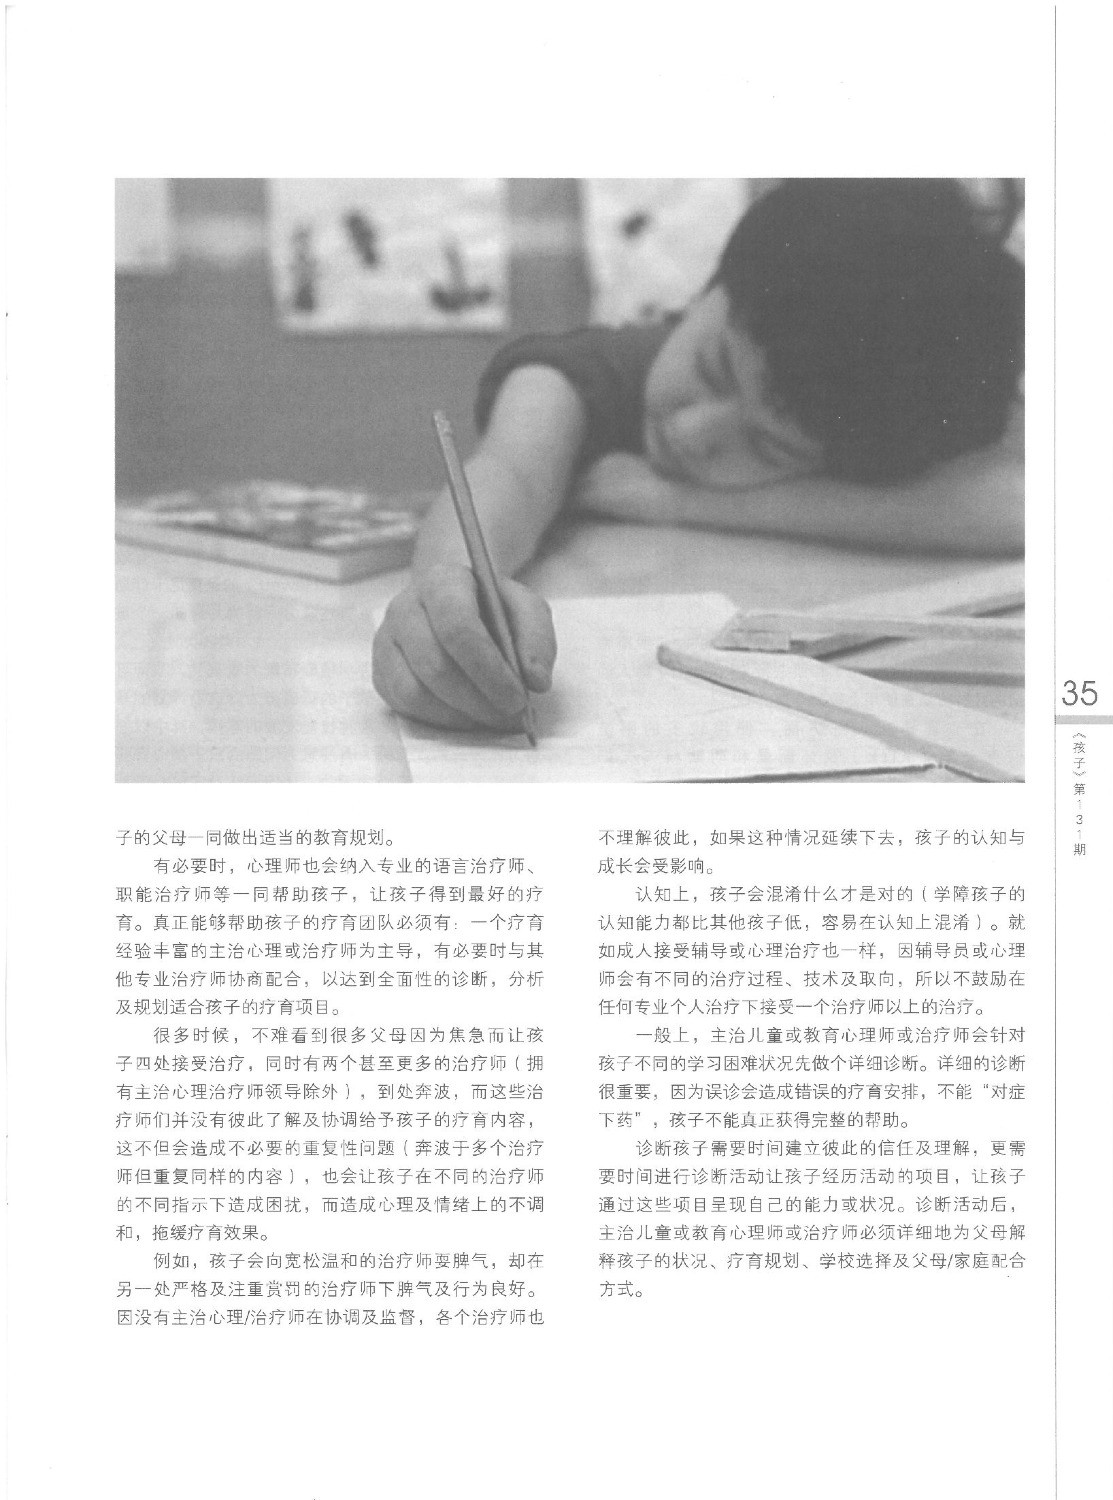 子的父母一同做出适当的教育规划。
有必要时，心理师也会纳入专业的语言治疗师、
职能治疗师等一同帮助孩子，让孩子得到最好的疗
育。真正能够帮助孩子的疗育团队必须有：一个疗育
经验丰富的主治心理或治疗师为主导，有必要时与其
他专业治疗师协商配合，以达到全面性的诊断，分析
及规划适合孩子的疗育项目。
很多时候，不难看到很多父母因为焦急而让孩
子四处接受治疗，同时有两个甚至更多的治疗师（拥
有主治心理治疗师领导除外），到处奔波，而这些治
疗师们并没有彼此了解及协调给予孩子的疗育内容，
这不但会造成不必要的重复性问题（奔波于多个治疗
师但重复同样的内容），也会让孩子在不同的治疗师
的不同指示下造成困扰，而造成心理及情绪上的不调
和，拖缓疗育效果。
例如，孩子会向宽松温和的治疗师耍脾气，却在
另一处严格及注重赏罚的治疗师下脾气及行为良好。
因没有主治心理/治疗师在协调及监督，各个治疗师也
不理解彼此，如果这种情况延续下去，孩子的认知与
成长会受影响。
认知上，孩子会混淆什么才是对的（学障孩子的
认知能力都比其他孩子低，容易在认知上混淆）。就
如成人接受辅导或心理治疗也一样，因辅导员或心理
师会有不同的治疗过程、技术及取向，所以不鼓励在
任何专业个人治疗下接受一个治疗师以上的治疗。
一般上，主治儿童或教育心理师或治疗师会针对
孩子不同的学习困难状况先做个详细诊断。详细的诊断
很重要，因为误诊会造成错误的疗育安排，不能“对症
下药”，孩子不能真正获得完整的帮助。
诊断孩子需要时间建立彼此的信任及理解，更需
要时间进行诊断活动让孩子经历活动的项目，让孩子
通过这些项目呈现自己的能力或状况。诊断活动后，
主治儿童或教育心理师或治疗师必须详细地为父母解
释孩子的状况、疗育规划、学校选择及父母/家庭配合
方式。
35
《孩子》第131期